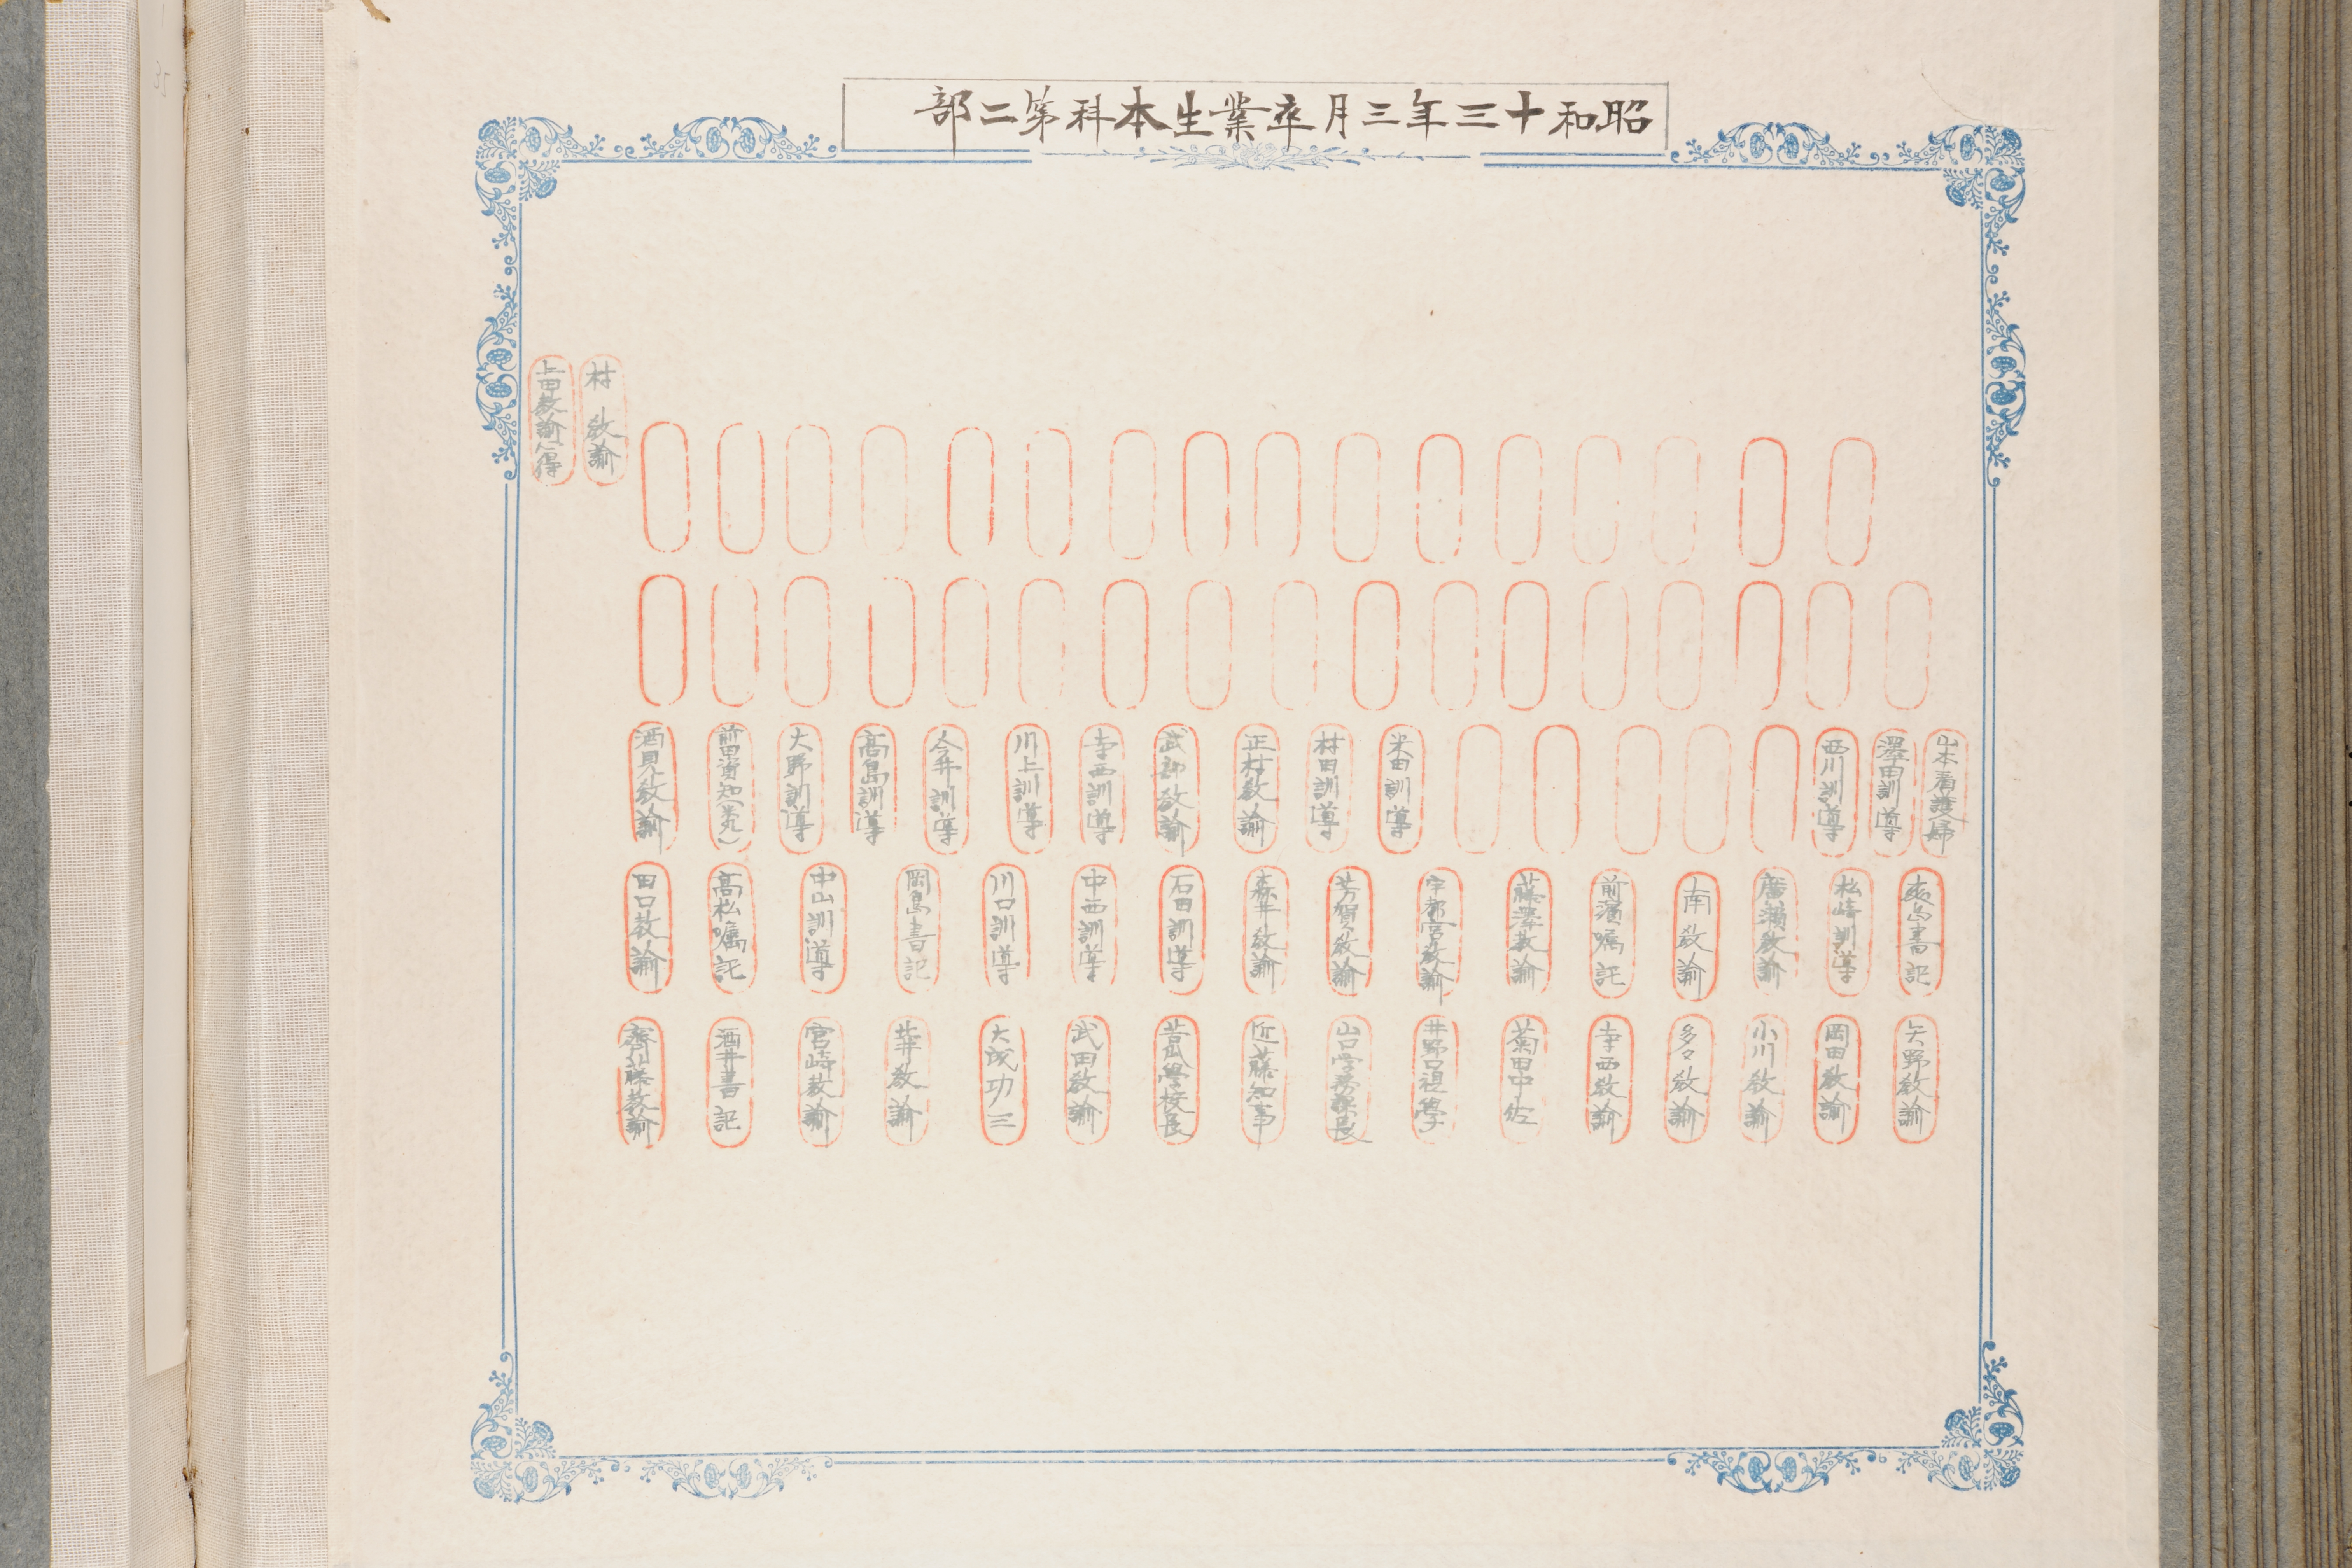 昭和十三年三月卒業生本科第二部
村 教諭
上田教諭心得
山本看護婦
澤田訓導
西川訓導
米田訓導
村田訓導
正村教諭
武部教諭
寺西訓導
川上訓導
今井訓導
高島訓導
大野訓導
酒見教諭
松崎訓導
廣瀬教諭
南教諭
前濱嘱託
藤澤教諭
宇都宮教諭
芳賀教諭
森井教諭
石田訓導
中西訓導
川口訓導
岡島書記
中山訓導
高松嘱託
田口教諭
矢野教諭
岡田教諭
小川教諭
多々教諭
寺西教諭
菊田中佐
井野口視學
山口学務課長
近藤知事
學校長
武田教諭
大成功三
教諭
宮崎教諭
酒井書記
齊藤教諭